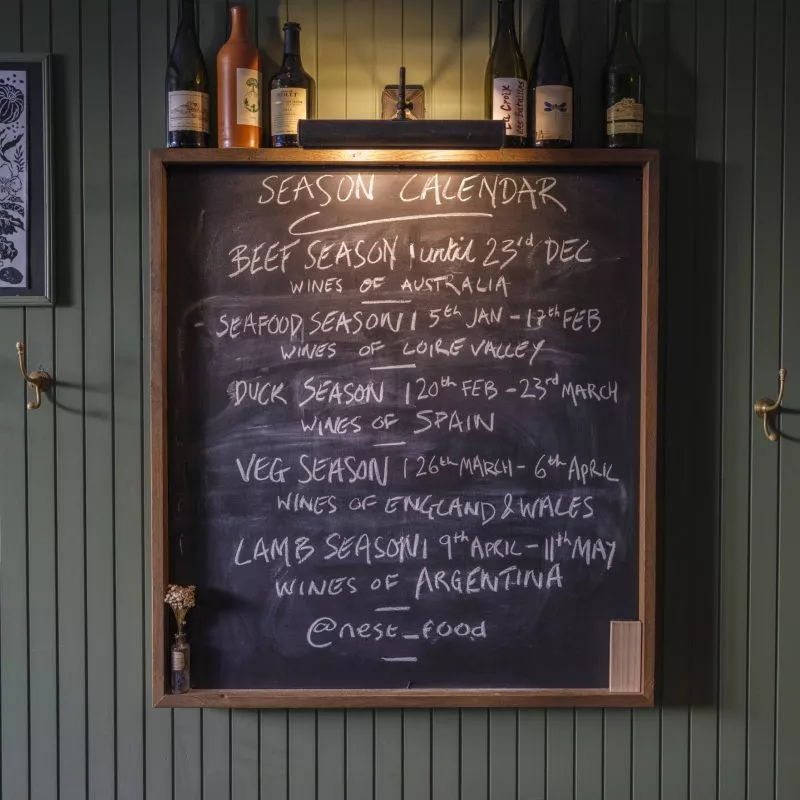 La Croix
des Batailles
SEASON CALENDAR
BEEF SEASON | until 23rd DEC
WINES OF AUSTRALIA
- SEAFOOD SEASON | 5th JAN - 17th FEB
WINES OF LOIRE VALLEY
DUCK SEASON | 20th FEB - 23rd MARCH
WINES OF SPAIN
VEG SEASON | 26th MARCH - 6th APRIL
WINES OF ENGLAND & WALES
LAMB SEASON | 9th APRIL - 11th MAY
WINES OF ARGENTINA
@nest_food